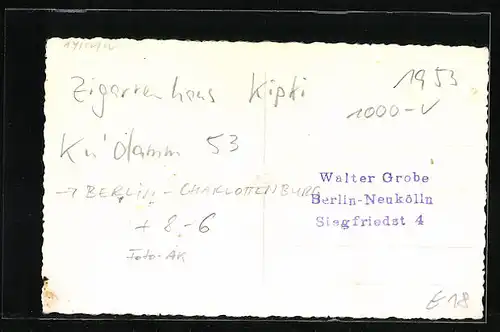 Zigarrenhaus Kipki
Ku'damm 53
→ BERLIN - CHARLOTTENBURG
+ 8.-6
Foto-AK
1953
1000-V
Walter Grobe
Berlin-Neukölln
Siegfriedst 4
€18